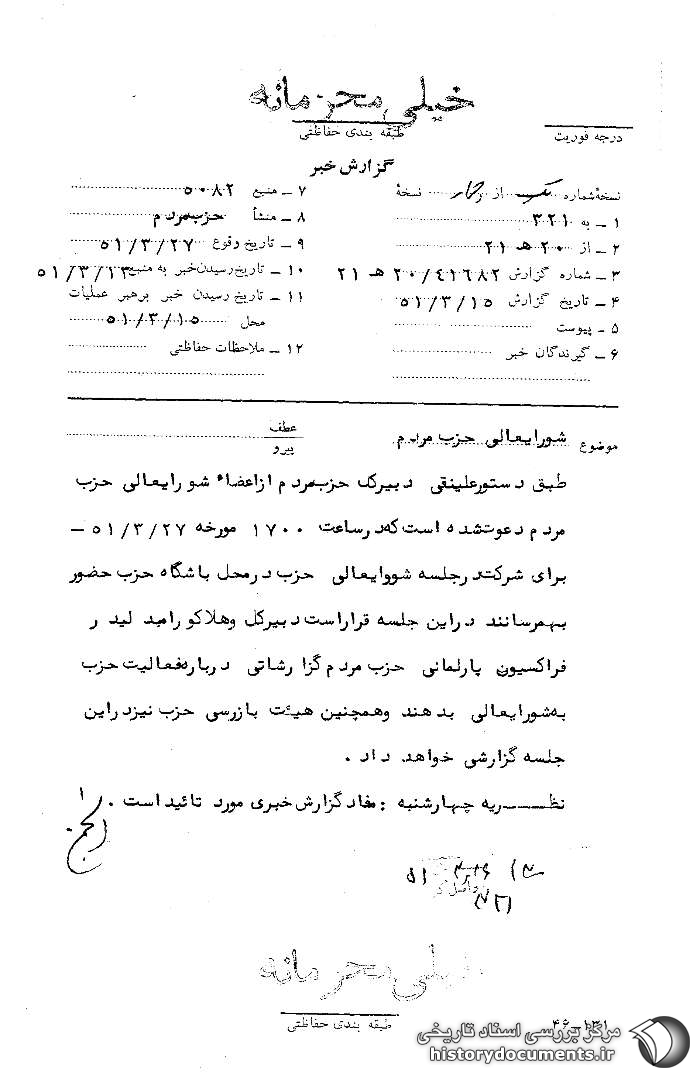 خیلی محرمانه
طبقه بندی حفاظتی
درجه فوریت
گزارش خبر
نسخهٔ شماره یک از چهار نسخهٔ
۱ – به ۳۲۱
۲ – از ۲۰ هـ ۲۱
۳ – شماره گزارش ۲۰/۴۱۶۸۲ هـ ۲۱
۴ – تاریخ گزارش ۵۱/۳/۱۵
۵ – پیوست
۶ – گیرندگان خبر
۷ – منبع ۵۰۸۲
۸ – منشأ حزب مردم
۹ – تاریخ وقوع ۵۱/۳/۲۷
۱۰ – تاریخ رسیدن خبر به منبع ۵۱/۳/۱۳
۱۱ – تاریخ رسیدن خبر برهبر عملیات
محل ۵۱/۳/۱۵
۱۲ – ملاحظات حفاظتی
موضوع شورایعالی حزب مردم
عطف
پیرو
طبق دستور علینقی دبیرکل حزب مردم از اعضاء شورایعالی حزب
مردم دعوت شده است که در ساعت ۱۷۰۰ مورخه ۵۱/۳/۲۷ –
برای شرکت در جلسه شووایعالی حزب در محل باشگاه حزب حضور
بهمرسانند در این جلسه قرار است دبیرکل وهلاکو رامبد لیدر
فراکسیون پارلمانی حزب مردم گزارشاتی درباره فعالیت حزب
به شورایعالی بدهند وهمچنین هیئت بازرسی حزب نیز در این
جلسه گزارشی خواهد داد .
نظـــریه چهارشنبه : مفاد گزارش خبری مورد تائید است .
۵۱
خیلی محرمانه
طبقه بندی حفاظتی
۴۶–۱۳۱
مرکز بررسی اسناد تاریخی
historydocuments.ir